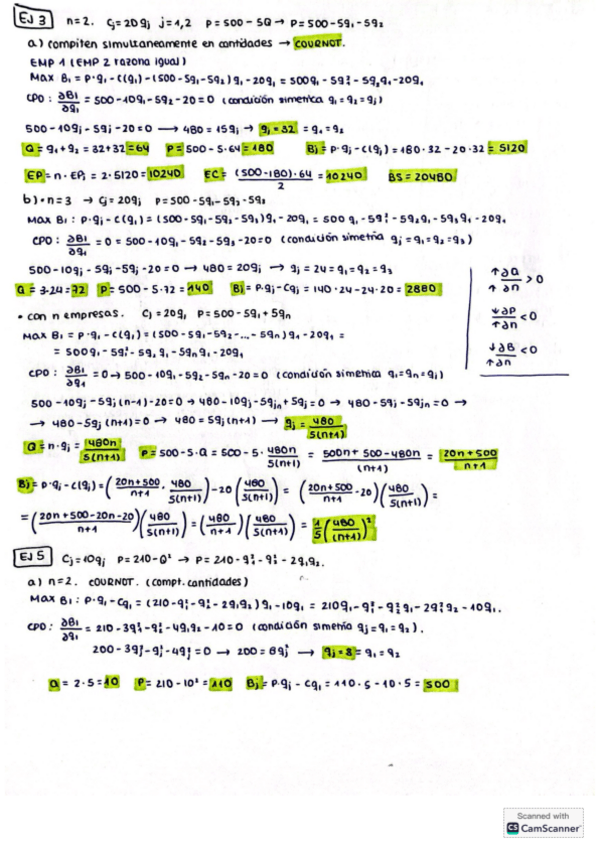 EJ 3 n=2. Cj=20qj j=1,2 P=500-5Q → P=500-5q₁-5q₂
a) compiten simultaneamente en cantidades → COURNOT.
EMP 1 (EMP 2 razona igual)
MAX B₁ = P·q₁-C(q₁)=(500-5q₁-5q₂)q₁-20q₁ = 500q₁-5q₁²-5q₂q₁-20q₁
CPO: ∂B1/∂q₁ = 500-10q₁-5q₂-20=0 (condición simetrica q₁=q₂=qj)
500-10qj-5qj-20=0 → 480=15qj → qj=32 = q₁=q₂
Q=q₁+q₂=32+32=64 P=500-5·64=180 Bj=P·qj-C(qj)=180·32-20·32=5120
EP=n·EPj=2·5120=10240 EC=(500-180)·64/2=10240 BS=20480
b) • n=3 → Cj=20qj P=500-5q₁-5q₂-5q₃
MAX B₁: P·qj-C(q₁)=(500-5q₁-5q₂-5q₃)q₁-20q₁=500q₁-5q₁²-5q₂q₁-5q₃q₁-20q₁
CPO: ∂B1/∂q₁ =0=500-10q₁-5q₂-5q₃-20=0 (condición simetria qj=q₁=q₂=q₃)
500-10qj-5qj-5qj-20=0 → 480=20qj → qj=24=q₁=q₂=q₃
Q=3·24=72 P=500-5·72=140 Bj=P·qj-Cqj=140·24-24·20=2880
↑∂Q/↑∂n >0
↓∂P/↑∂n <0
↓∂B/↑∂n <0
• con n empresas. Cj=20qj P=500-5q₁+5qn
MAX B₁=P·q₁-C(q₁)=(500-5q₁-5q₂-...-5qn)q₁-20q₁=
= 500q₁-5q₁²-5q₂q₁-5qnq₁-20q₁
CPO: ∂B1/∂q₁ =0 → 500-10q₁-5q₂-5qn-20=0 (condición simetrica q₁=qn=qj)
500-10qj-5qj(n-1)-20=0 → 480-10qj-5qjn+5qj=0 → 480-5qj-5qjn=0 →
→ 480-5qj(n+1)=0 → 480=5qj(n+1) → qj=480/5(n+1)
Q=n·qj=480n/5(n+1) P=500-5·Q=500-5·480n/5(n+1)=500n+500-480n/(n+1)=20n+500/n+1
Bj=P·qj-C(qj)=(20n+500/n+1·480/5(n+1))-20(480/5(n+1))=(20n+500/n+1-20)(480/5(n+1))=
=(20n+500-20n-20/n+1)(480/5(n+1))=(480/n+1)(480/5(n+1))=1/5(480/(n+1))²
EJ 5 Cj=10qj P=210-Q² → P=210-q₁²-q₂²-2q₁q₂.
a) n=2. COURNOT. (compt. cantidades)
MAX B₁: P·q₁-Cq₁=(210-q₁²-q₂²-2q₁q₂)q₁-10q₁=210q₁-q₁³-q₂²q₁-2q₁²q₂-10q₁.
CPO: ∂B1/∂q₁ =210-3q₁²-q₂²-4q₁q₂-10=0 (condición simetría qj=q₁=q₂).
200-3qj²-qj²-4qj²=0 → 200=8qj² → qj=5=q₁=q₂
Q=2·5=10 P=210-10²=110 Bj=P·qj-Cq₁=110·5-10·5=500
Scanned with
CS CamScanner